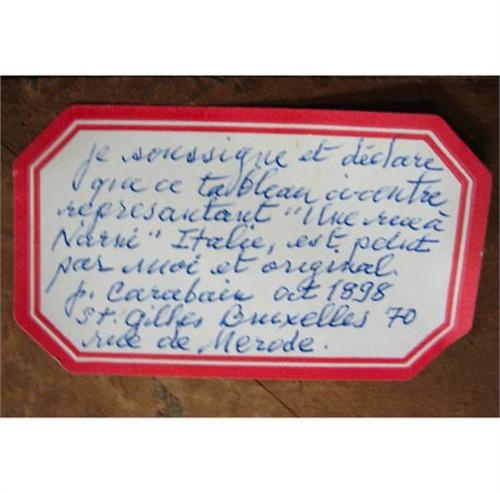 je soussigne et déclare
que ce tableau ci-contre
represantant "Une rue à
Narni" Italie, est peint
par moi et original.
J. Carabain oct 1898
St. Gilles Bruxelles 70
rue de Merode.